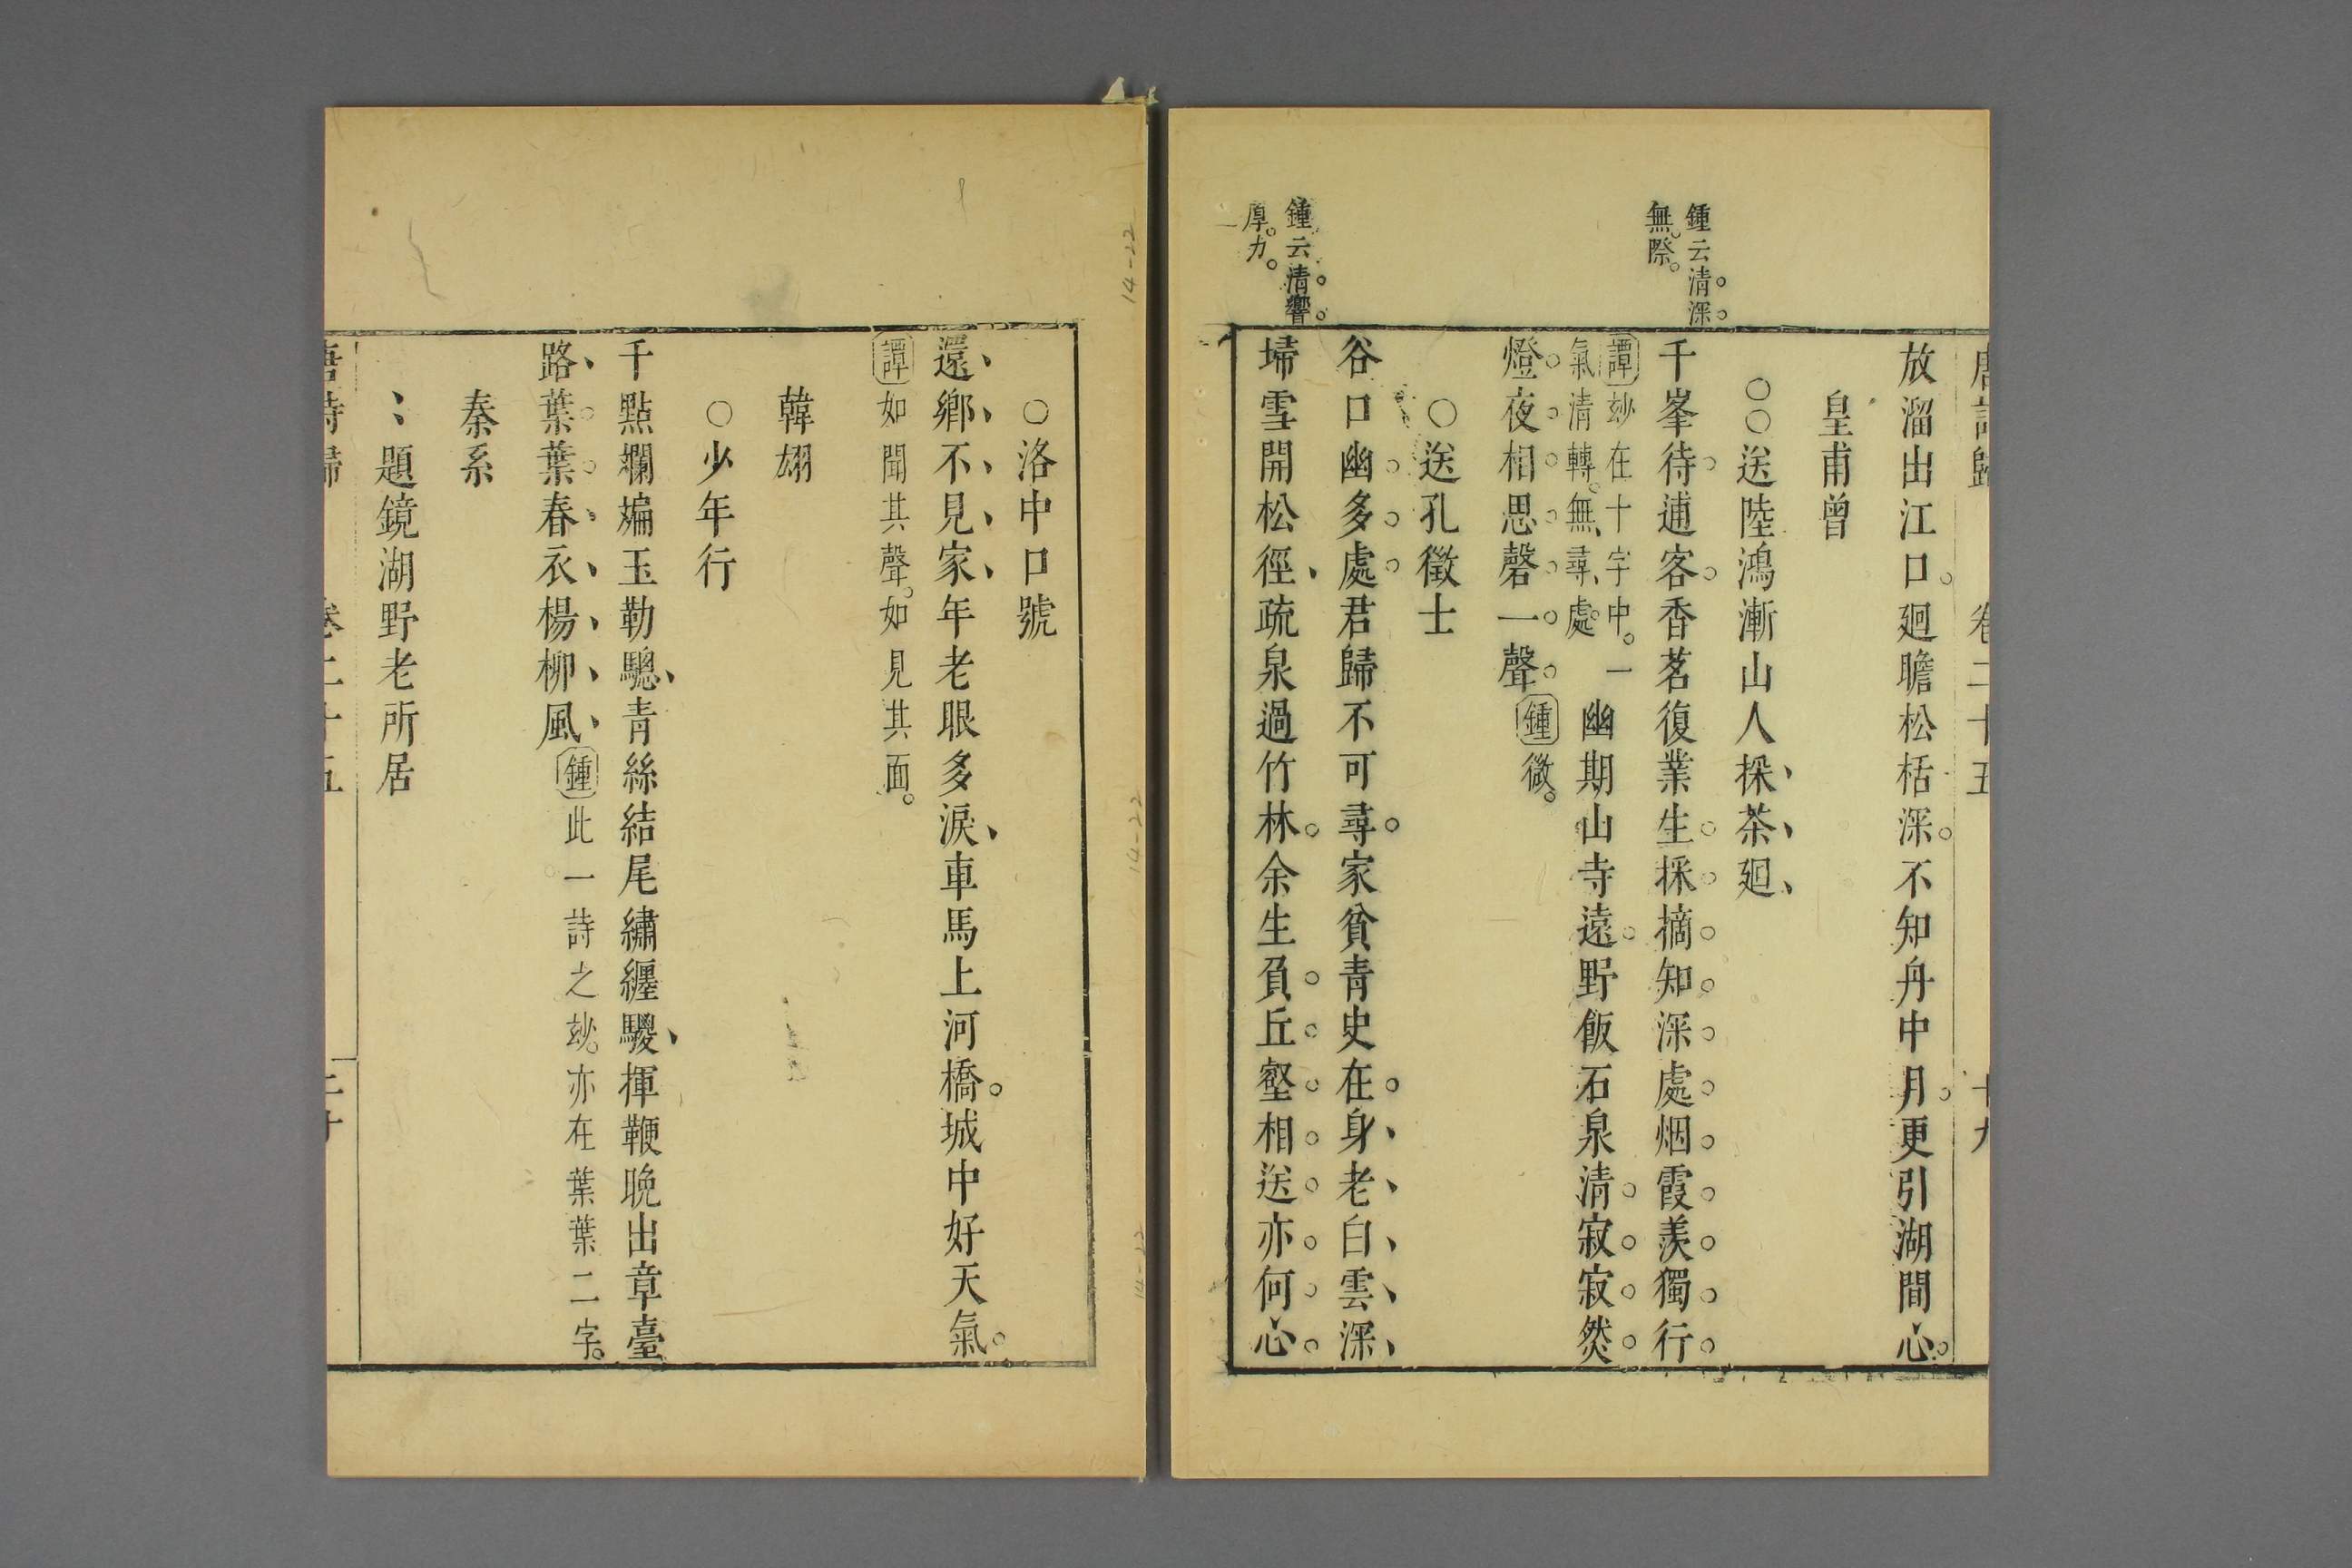 唐詩歸 卷二十五 十九
放溜出江口。廻瞻松栝深。不知舟中月。更引湖間心。
皇甫曾
○○送陸鴻漸山人採茶廻
鍾云清深
無際。
千峯待逋客香茗復業生採摘知深處烟霞羨獨行
譚玅在十字中。一
氣清轉。無尋處。
幽期山寺遠野飯石泉清寂寂然
燈夜相思磬一聲鍾微。
○送孔徵士
谷口幽多處君歸不可尋。家貧青史在身老白雲深
鍾云清響
厚力。
埽雪開松徑疏泉過竹林。余生負丘壑相送亦何心
○洛中口號
還鄉不見家年老眼多淚車馬上河橋。城中好天氣。
譚如聞其聲。如見其面。
韓翃
○少年行
千點斕斒玉勒驄青絲結尾繡纏騣揮鞭晚出章臺
路葉葉春衣楊柳風鍾此一詩之玅。亦在葉葉二字。
秦系
、、題鏡湖野老所居
唐詩歸 卷二十五 二十
14-22
14-22
14-22